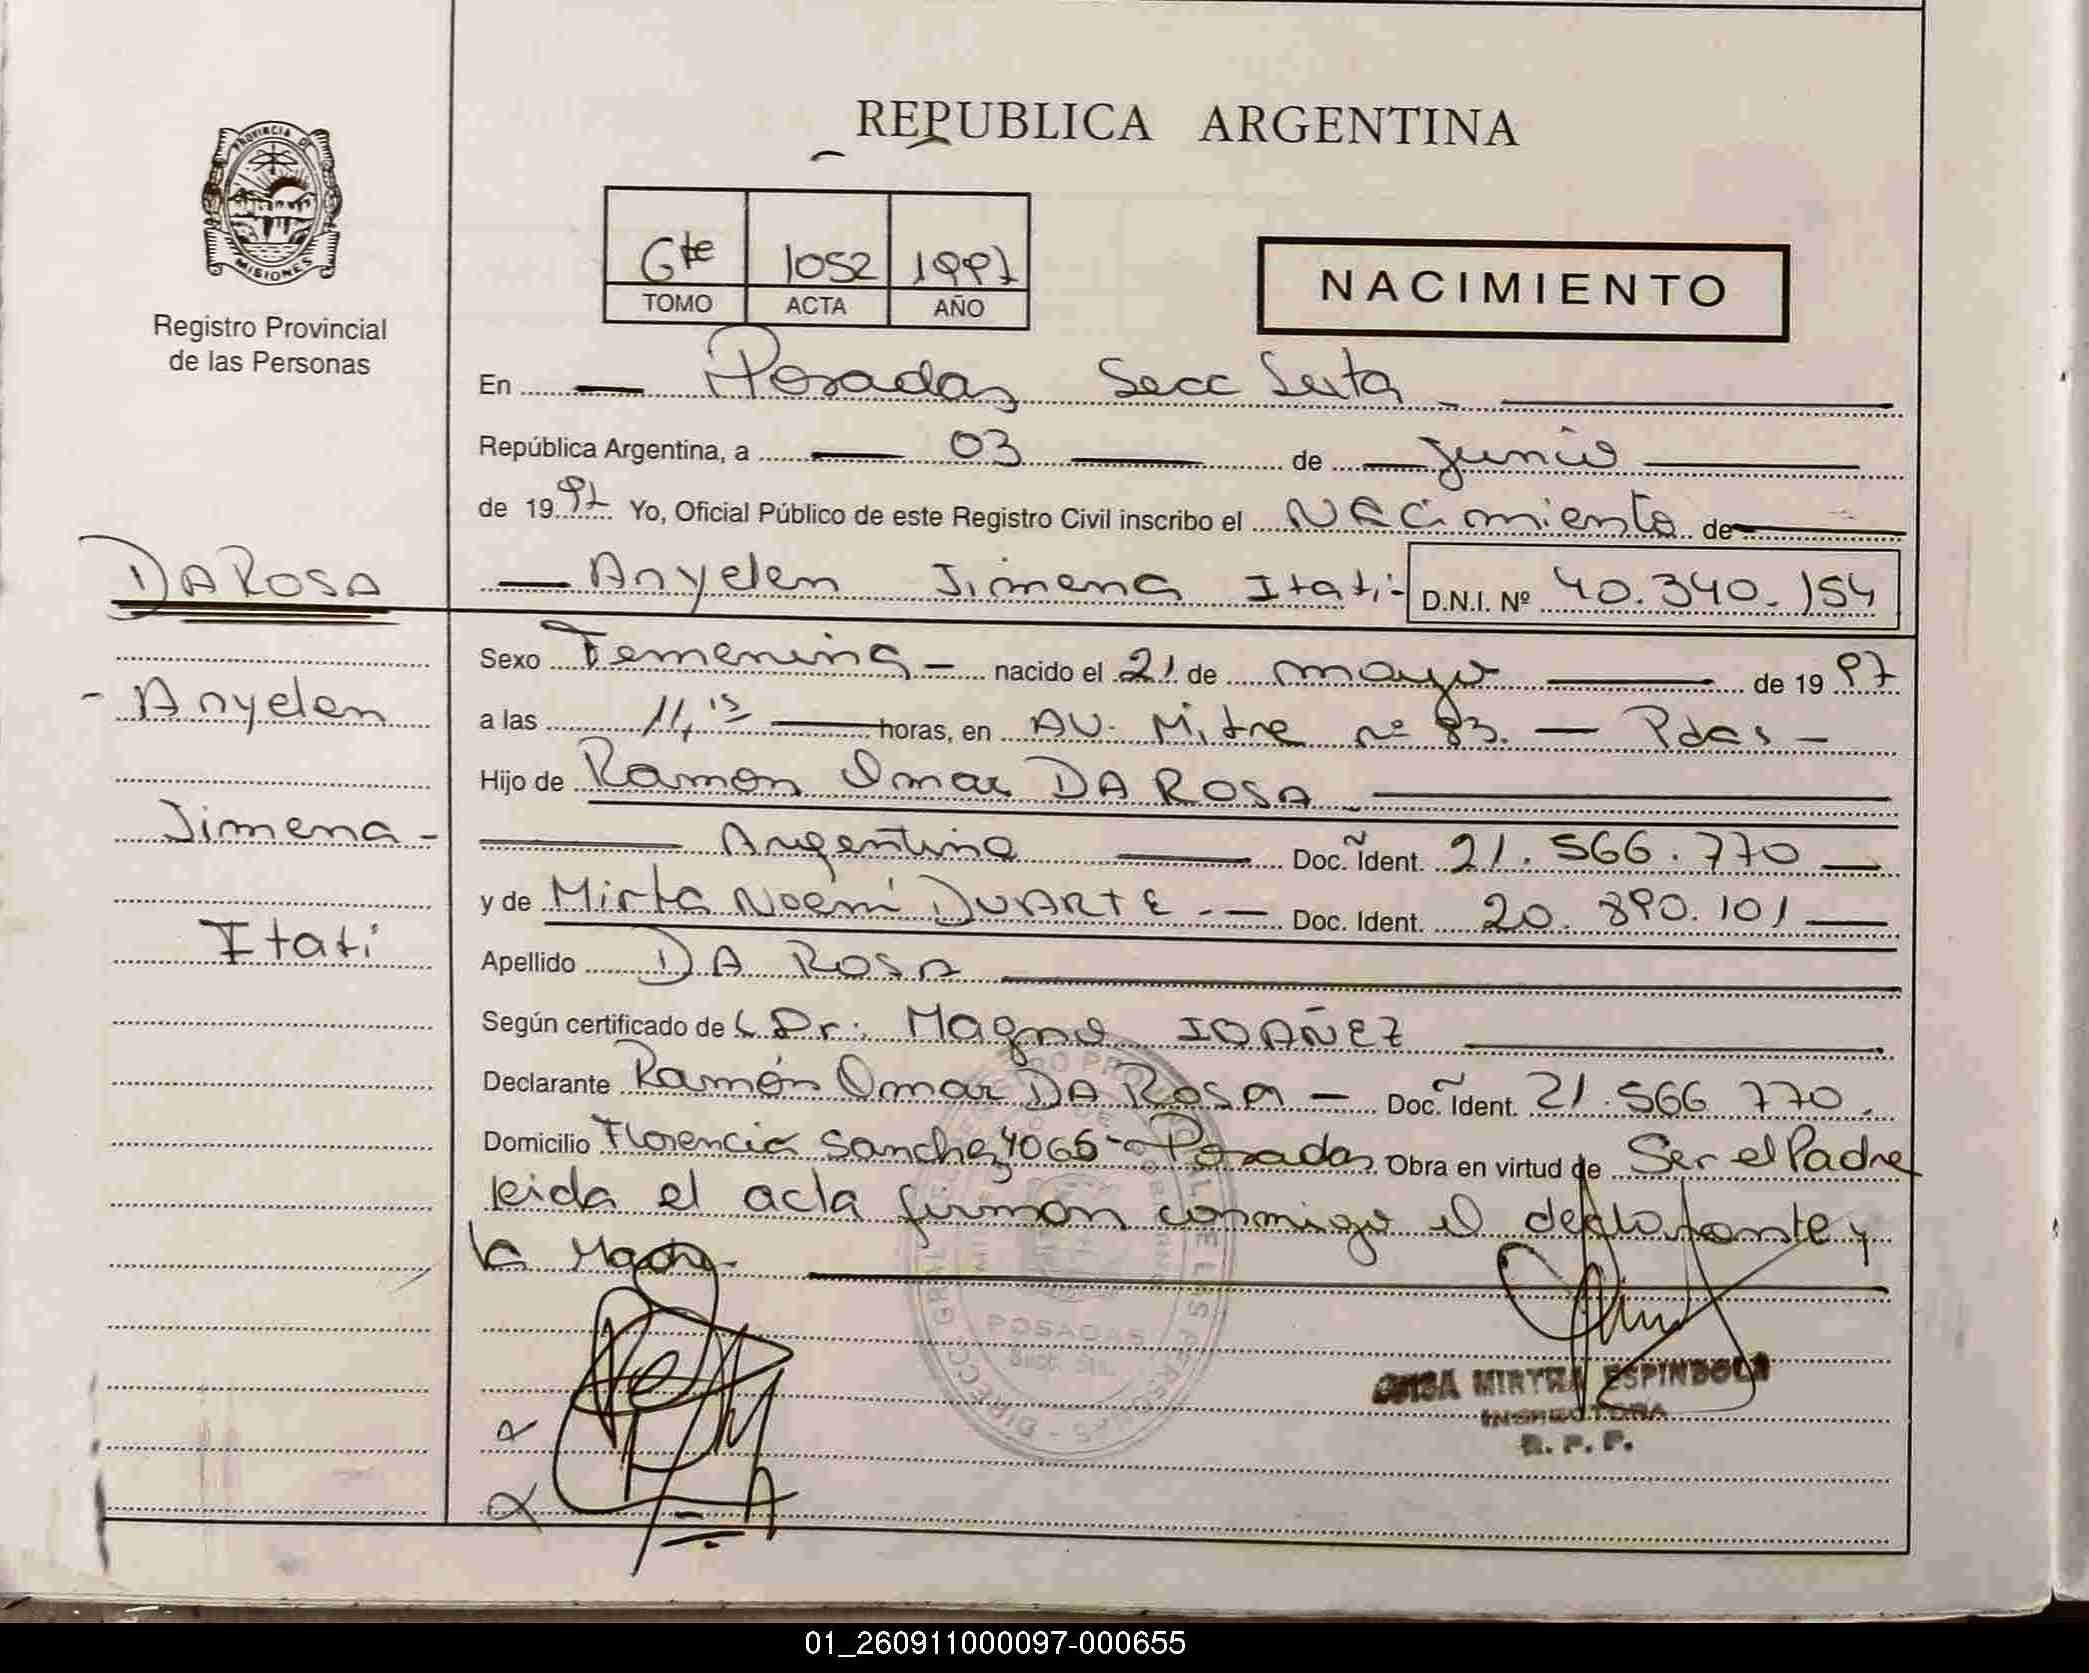 REPUBLICA ARGENTINA
PROVINCIA DE
MISIONES
Registro Provincial
de las Personas
6te 1052 1997
TOMO ACTA AÑO
NACIMIENTO
En Posadas Secc Sexta
República Argentina, a 03 de Junio
de 1997 Yo, Oficial Público de este Registro Civil inscribo el NACimiento de
DA ROSA
Anyelen Jimena Itati- D.N.I. Nº 40.340.154
Sexo Femenina - nacido el 21 de mayo de 1997
- Anyelen
a las 11,15 horas, en AV. Mitre nº 83. - Pdas -
Hijo de Ramon Omar DA ROSA
Jimena -
Argentino Doc. Ident. 21.566.770
y de Mirta Noemí DUARTE - Doc. Ident. 20.890.101
Itati
Apellido DA ROSA
Según certificado de Dr: Magno IBAÑEZ
Declarante Ramón Omar DA ROSA - Doc. Ident. 21.566.770.
Domicilio Florencia Sanchez 4066 - Posadas. Obra en virtud de Ser el Padre
leida el acta firman conmigo el declarante y
la Madre
POSADAS
MIRTHA ESPINDOLA
INSPECTORA
R. P. P.
01_260911000097-000655